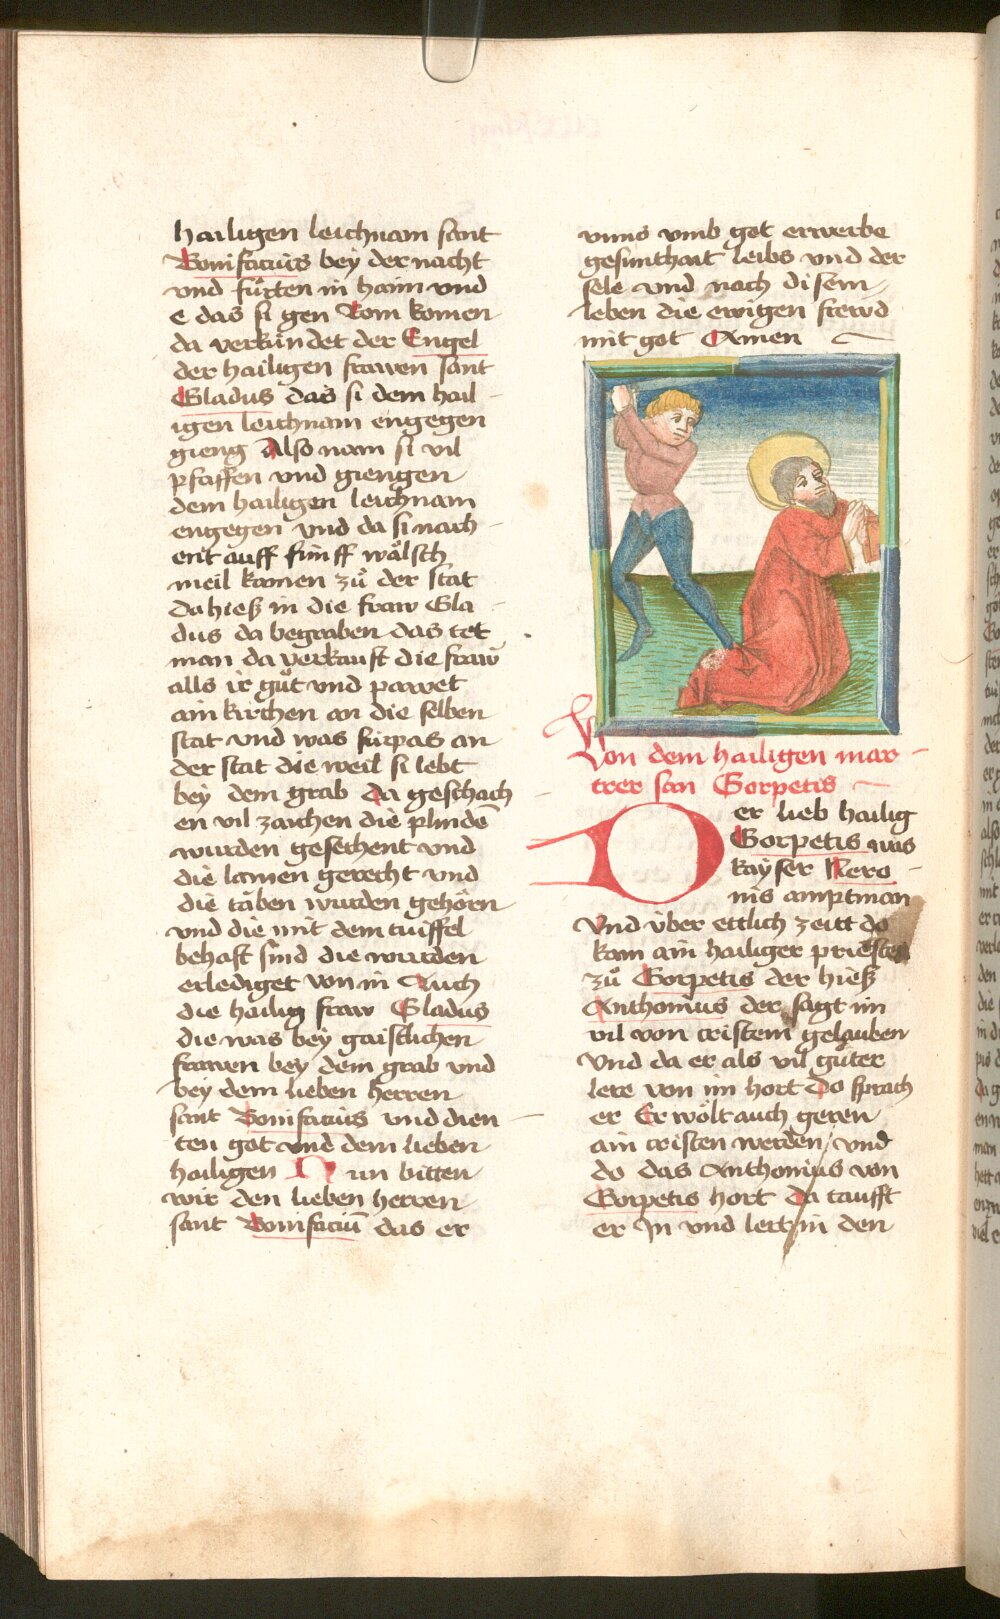 hailigen leichnam sant
Bonifacius bey der nacht
vnd fürten in haim vnd
e das si gen Rom komen
da verkündet der Engel
der hailigen frawen sant
Gladus das si dem hail
igen leichnam engegen
gieng Also nam si vil
pfaffen vnd giengen
dem hailigen leichnam
engegen vnd da si nach
ent auff fünff wälsch
meil komen zů der stat
da hieß in die fraw Gla
dus da begraben das tet
man da verkauft die fraw
alls ir gůt vnd pawet
ain kirchen an die selben
stat vnd was fürpas an
der stat die weil si lebt
bey dem grab Da geschach
en vil zaichen die plindē
wurden gesechent vnd
die lamen gerecht vnd
die täben wurden gehörn
vnd die mit dem tuiffel
behaft sind die wurden
erlediget von in Auch
die hailig fraw Gladus
die was bey gaistlichen
frawen bey dem grab vnd
bey dem lieben herren
sant Bonifacius vnd dien
ten got vnd dem lieben
hailigen Nun bitten
wir den lieben herren
sant Bonifaciū das er
vnns vmb got erwerbe
gesunthait leibs vnd der
sele vnd nach disem
leben die ewigen frewd
mit got Amen
Von dem hailigen mar
trer san Gorpetis
Der lieb hailig
Gorpetis was
kayser Nero
nis amptman
Vnd über ettlich zeitt do
kam ain hailiger priester
zů Gorpetis der hieß
Anthonius der sagt im
vil von cristem gelauben
Vnd da er als vil güter
lere von im hort Do sprach
er Er wölt auch geren
ain cristen werden vnd
do das Anthonius von
Gorpetis hort Da taufft
er In vnd lert in den